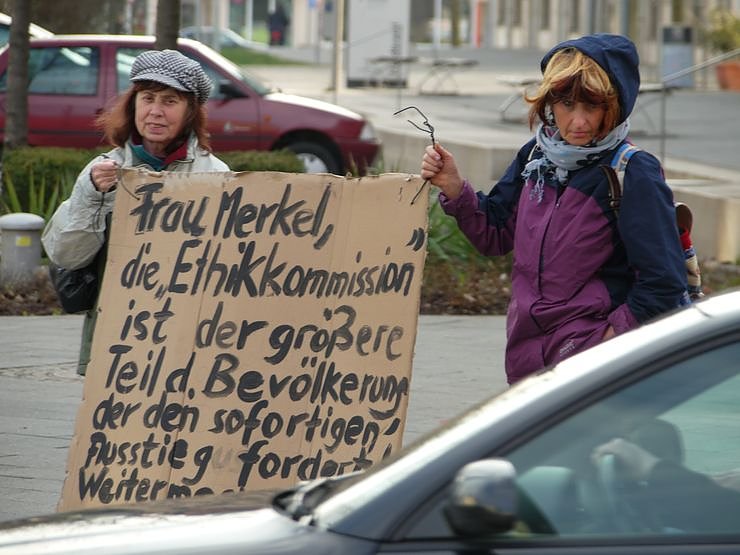 Frau Merkel,
die „Ethikkommission"
ist der größere
Teil d. Bevölkerung
der den sofortigen
Ausstieg fordert!